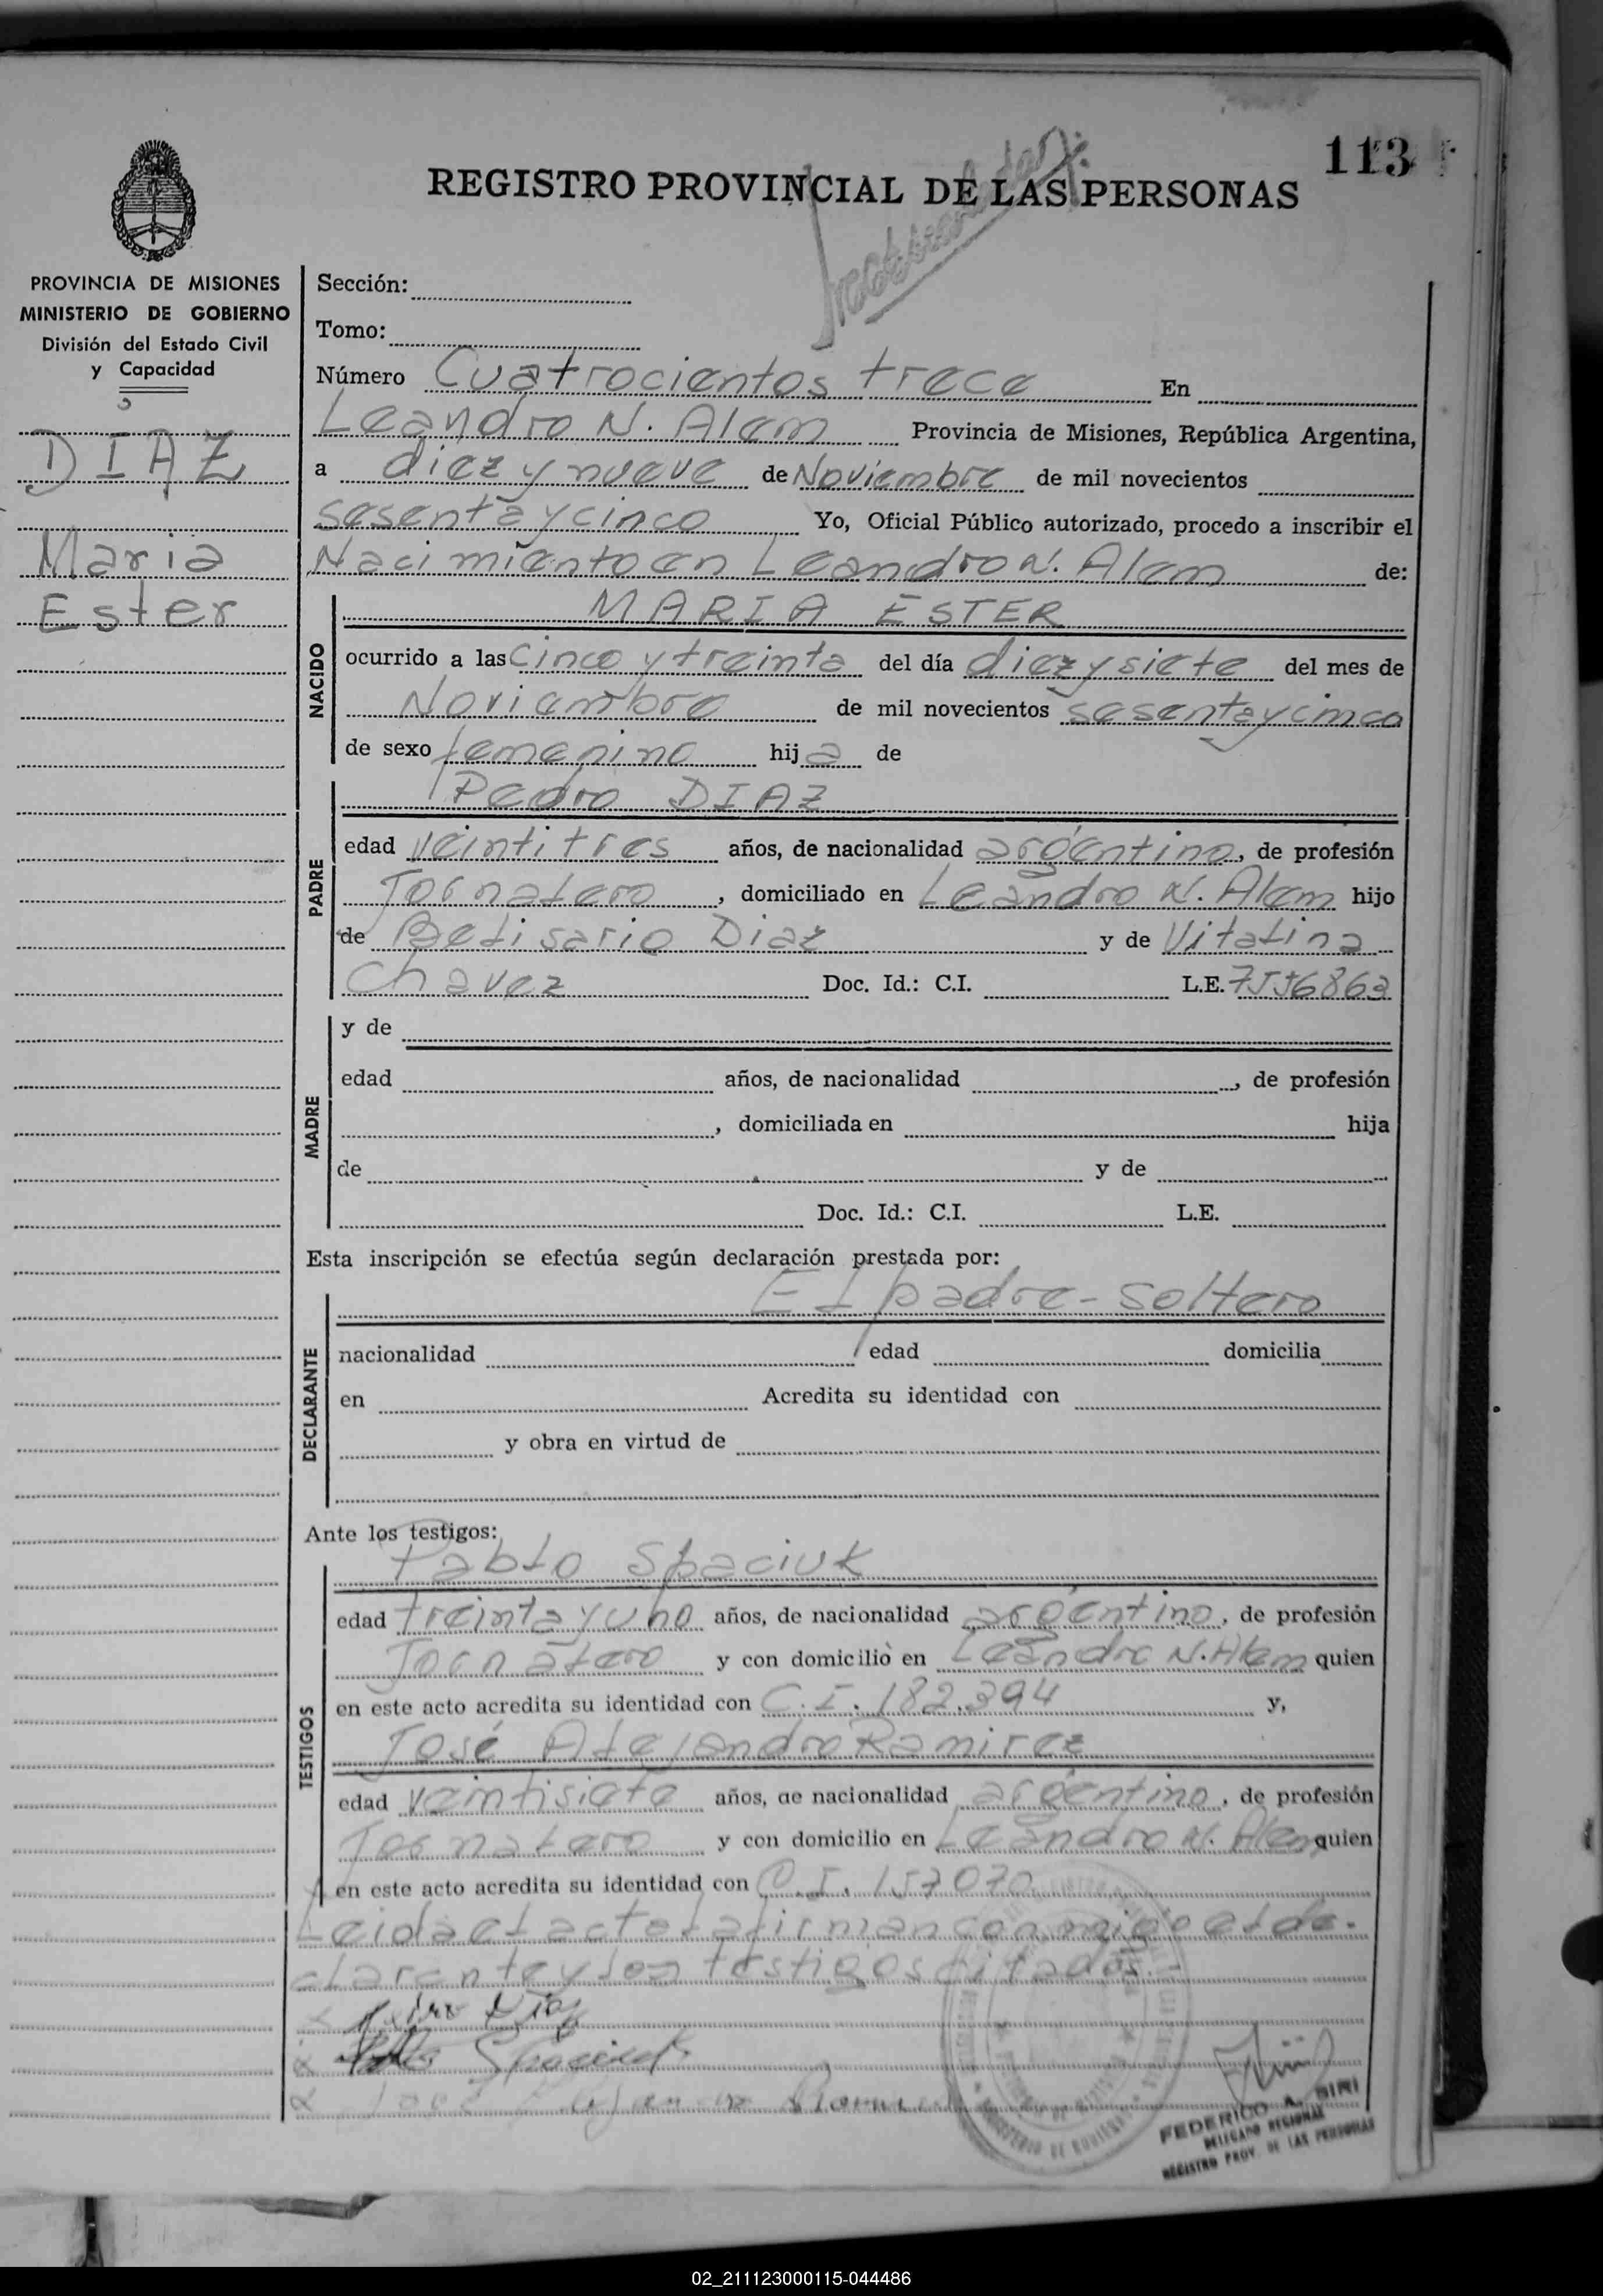 113
REGISTRO PROVINCIAL DE LAS PERSONAS
PROVINCIA DE MISIONES
MINISTERIO DE GOBIERNO
División del Estado Civil
y Capacidad
DIAZ
Maria
Ester
Sección:
Tomo:
Número Cuatrocientos trece En
Leandro N. Alem Provincia de Misiones, República Argentina,
a diez y nueve de Noviembre de mil novecientos
sesenta y cinco Yo, Oficial Público autorizado, procedo a inscribir el
Nacimiento en Leandro N. Alem de:
MARIA ESTER
NACIDO
ocurrido a las cinco y treinta del día diez y siete del mes de
Noviembre de mil novecientos sesenta y cinco
de sexo femenino hija de
Pedro DIAZ
PADRE
edad veintitres años, de nacionalidad argentino, de profesión
Jornalero, domiciliado en Leandro N. Alem hijo
de Belisario Diaz y de Vitalina
Chavez Doc. Id.: C.I. L.E. 7556863
MADRE
y de
edad años, de nacionalidad , de profesión
, domiciliada en hija
de y de
Doc. Id.: C.I. L.E.
Esta inscripción se efectúa según declaración prestada por:
El padre - soltero
DECLARANTE
nacionalidad edad domicilia
en Acredita su identidad con
y obra en virtud de
Ante los testigos:
Pablo Spaciuk
TESTIGOS
edad treinta y uno años, de nacionalidad argentino, de profesión
Jornalero y con domicilio en Leandro N. Alem quien
en este acto acredita su identidad con C.I. 182.394 y,
José Alejandro Ramirez
edad veintisiete años, de nacionalidad argentino, de profesión
Jornalero y con domicilio en Leandro N. Alem quien
en este acto acredita su identidad con C.I. 157070
Leida el acta la firman conmigo el de-
clarante y los testigos citados.-
Diaz
Spaciuk
José Alejandro Ramirez
FEDERICO A. SIRI
DELEGADO REGIONAL
REGISTRO PROV. DE LAS PERSONAS
02_211123000115-044486